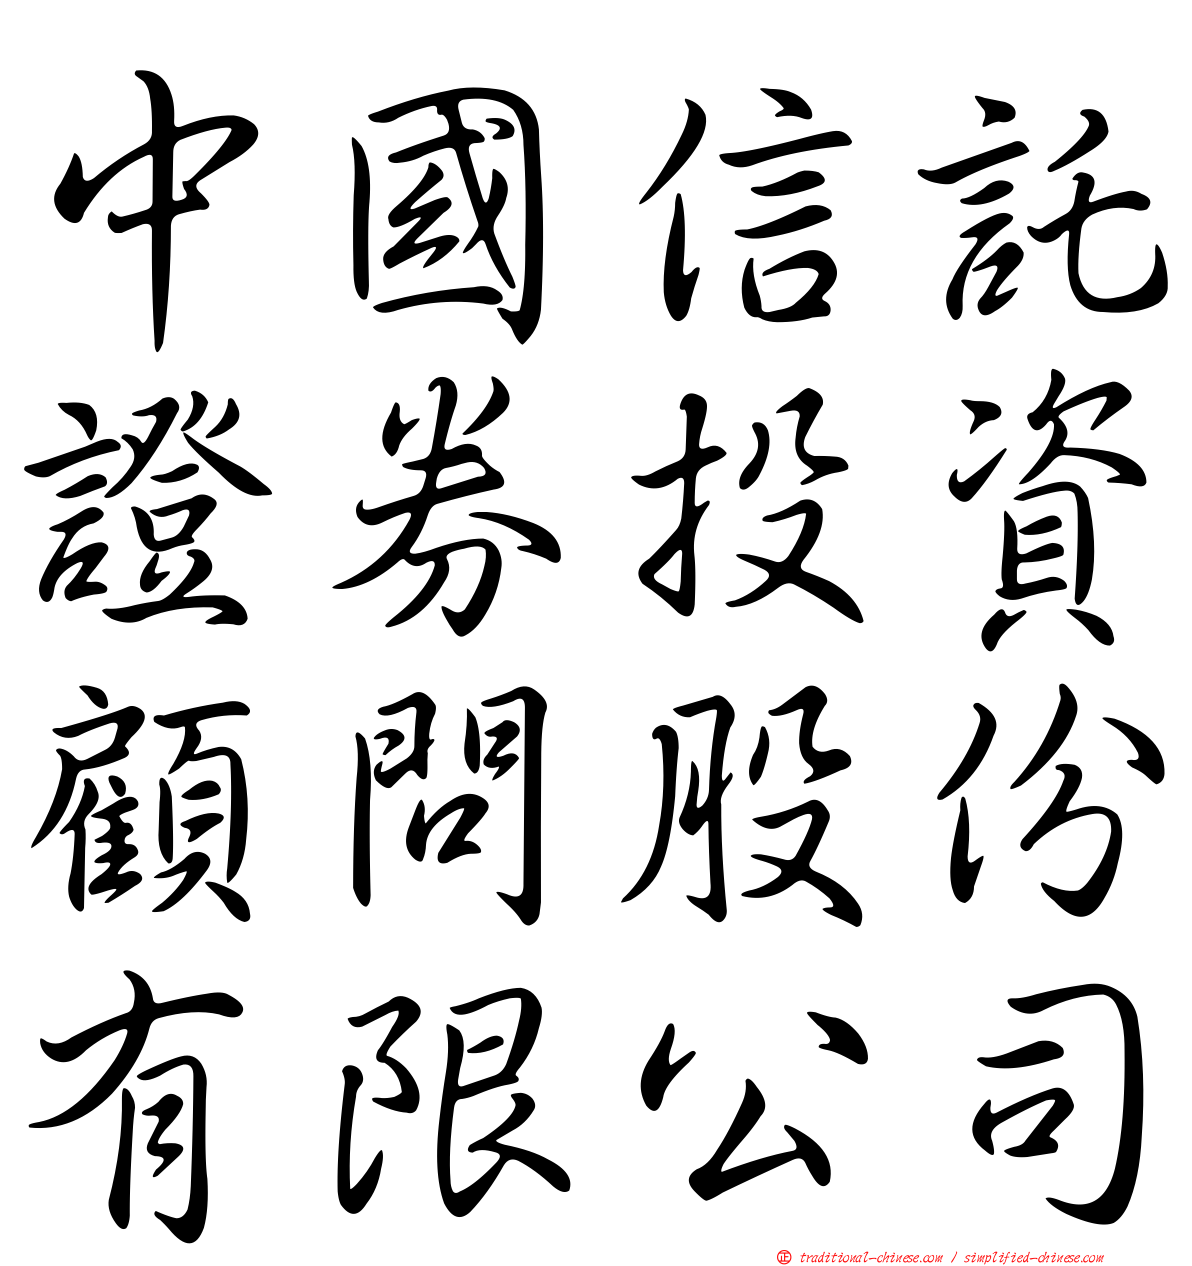 中國信託
證券投資
顧問股份
有限公司
㊣ traditional-chinese.com / simplified-chinese.com